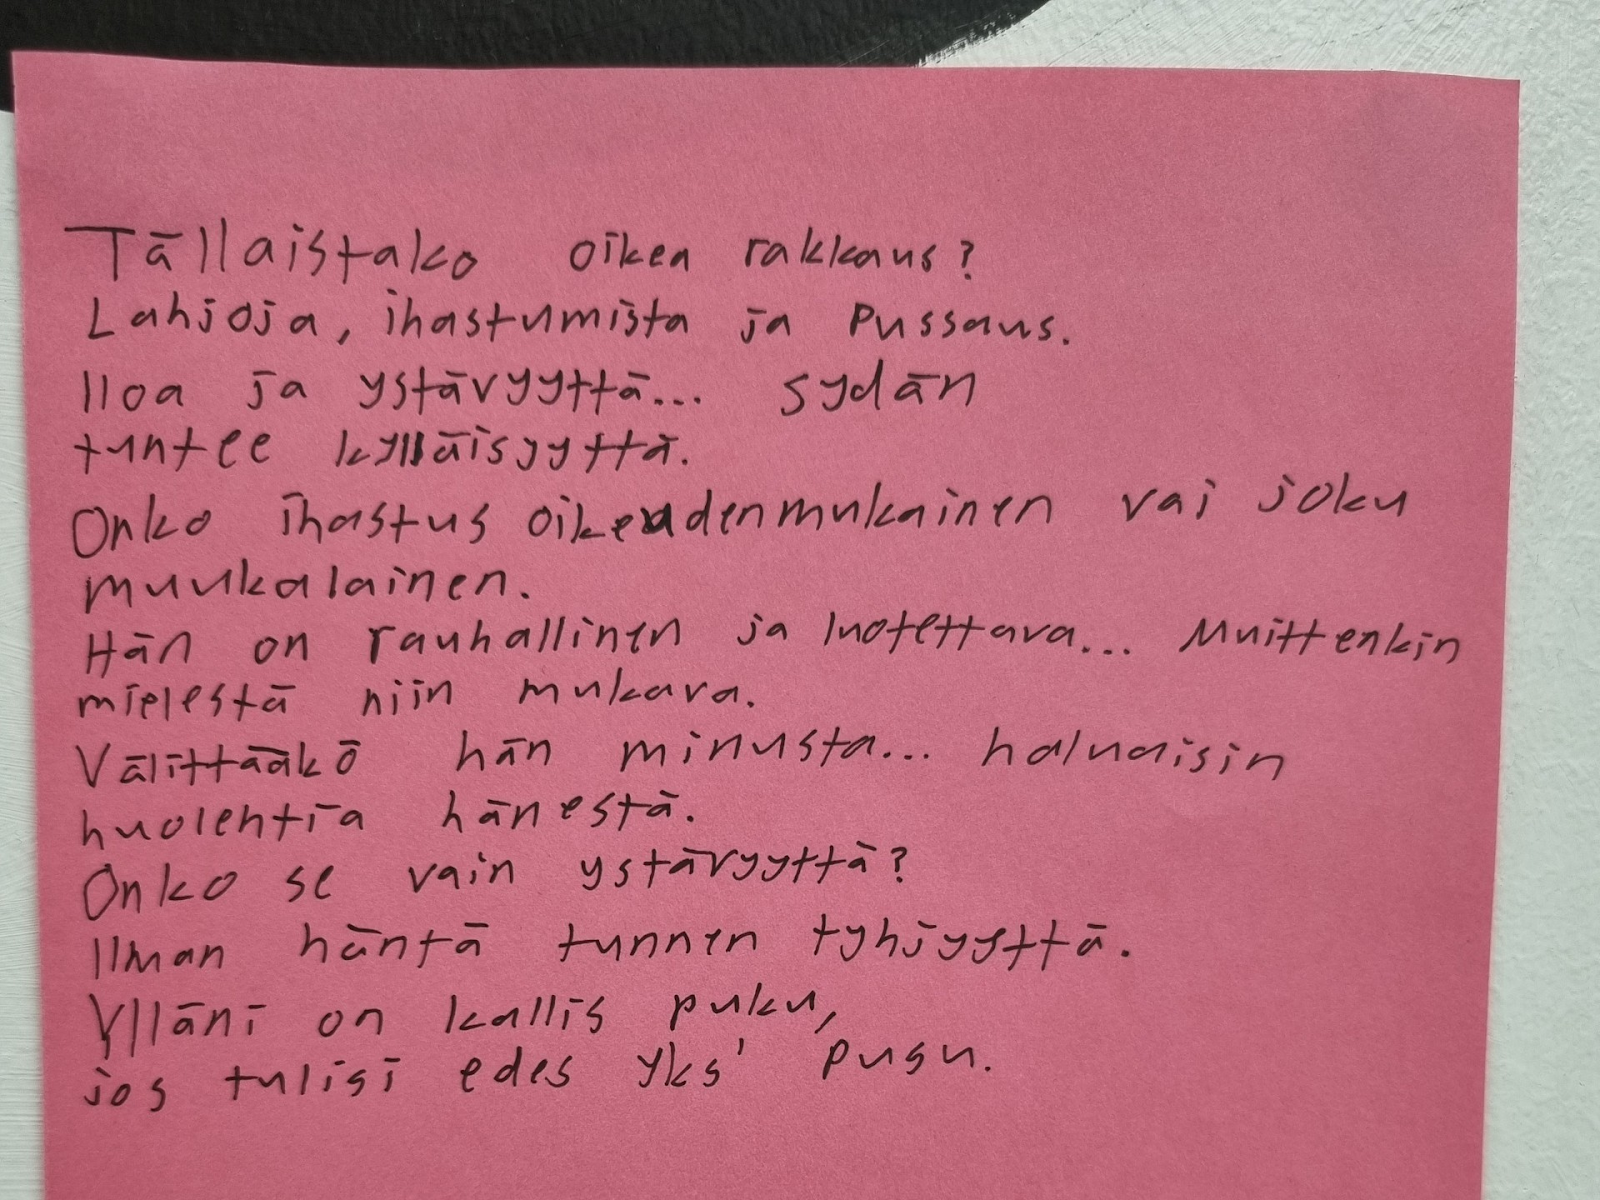 Tällaistako oikea rakkaus?
Lahjoja, ihastumista ja Pussaus.
Iloa ja ystävyyttä... sydän
tuntee kylläisyyttä.
Onko ihastus oikeudenmukainen vai joku
muukalainen.
Hän on rauhallinen ja luotettava... Muittenkin
mielestä niin mukava.
Välittääkö hän minusta... haluaisin
huolehtia hänestä.
Onko se vain ystävyyttä?
Ilman häntä tunnen tyhjyyttä.
Ylläni on kallis puku,
jos tulisi edes yks' pusu.